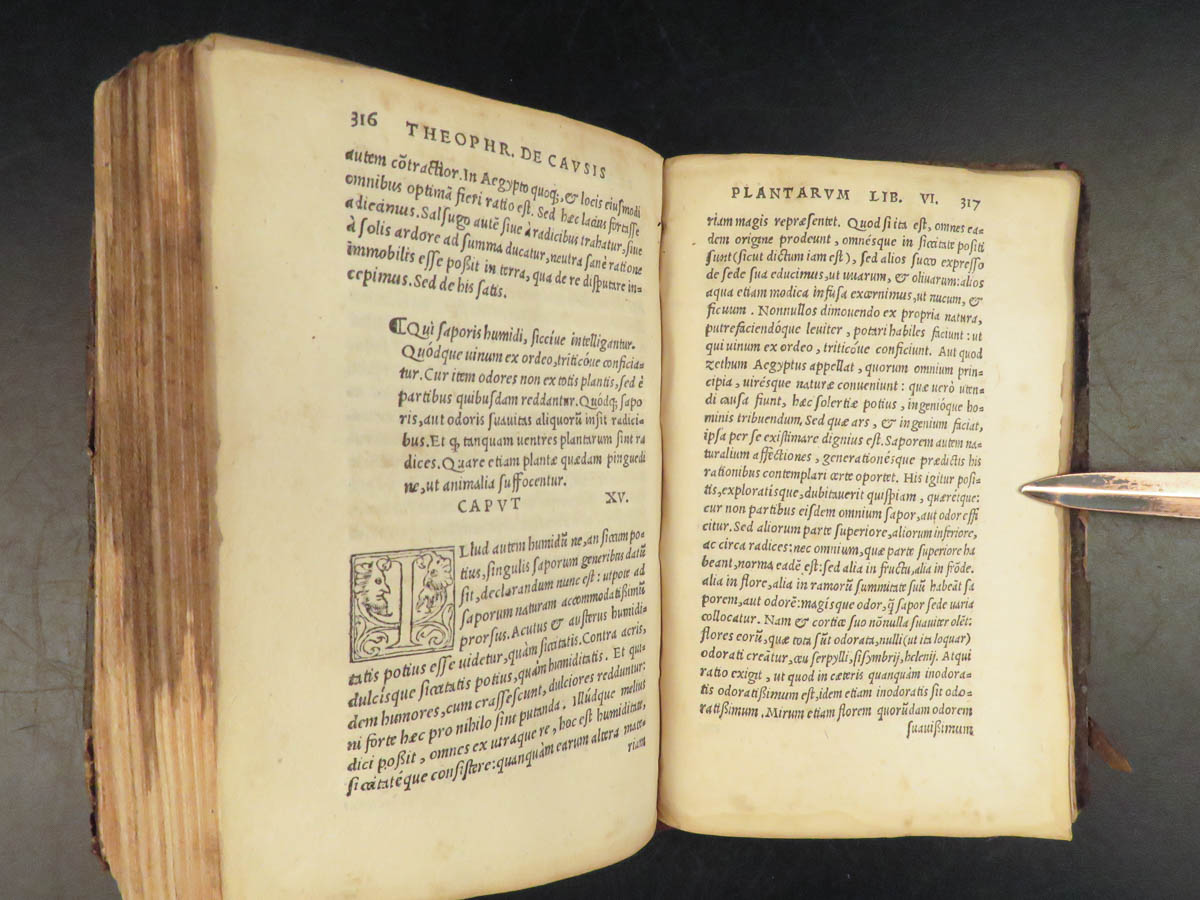 316 THEOPHR. DE CAVSIS
autem cõtractior. In Aegypto quoq;, & locis eiusmodi
omnibus optimã fieri ratio est. Sed hæc latius fortasse
adiecimus. Salsugo autẽ siue à radicibus trahatur, siue
à solis ardore ad summa ducatur, neutra sanè ratione
immobilis esse poßit in terra, qua de re disputare in-
cepimus. Sed de his satis.
Qui saporis humidi, sicciue intelligantur.
Quódque uinum ex ordeo, triticóue conficia-
tur. Cur item odores non ex totis plantis, sed è
partibus quibusdam reddantur. Quódq; sapo
ris, aut odoris suauitas aliquorũ insit radici-
bus. Et q, tanquam uentres plantarum sint ra
dices. Quare etiam plantæ quædam pinguedi
ne, ut animalia suffocentur.
CAPVT XV.
Illud autem humidũ ne, an siccum po-
tius, singulis saporum generibus datũ
sit, declarandum nunc est: utpote ad
saporum naturam accommodatißimũ
prorsus. Acutus & austerus humidi-
tatis potius esse uidetur, quàm siccitatis. Contra acris,
dulcisque siccitatis potius, quàm humiditatis. Et qui-
dem humores, cum crassescunt, dulciores redduntur:
ni forte hæc pro nihilo sint putanda. Illúdque melius
dici poßit, omnes ex utraque re, hoc est humiditate,
siccitatéque consistere: quanquàm earum altera mate-
riam
PLANTARVM LIB. VI. 317
riam magis repræsentet. Quod si ita est, omnes ea-
dem origine prodeunt, omnésque in siccitate positi
sunt (sicut dictum iam est), sed alios succo expresso
de sede sua educimus, ut uuarum, & oliuarum: alios
aqua etiam modica infusa excernimus, ut nucum, &
ficuum. Nonnullos dimouendo ex propria natura,
putrefaciendóque leuiter, potari habiles faciunt: ut
qui uinum ex ordeo, triticóue conficiunt. Aut quod
zethum Aegyptus appellat, quorum omnium prin-
cipia, uirésque naturæ conueniunt: quæ uerò uten-
di causa fiunt, hæc solertiæ potius, ingenióque ho-
minis tribuendum. Sed quæ ars, & ingenium faciat,
ipsa per se existimare dignius est. Saporem autem na-
turalium affectiones, generationésque prædictis his
rationibus contemplari certe oportet. His igitur posi-
tis, exploratisque, dubitauerit quispiam, quæretque:
cur non partibus eisdem omnium sapor, aut odor effi
citur. Sed aliorum parte superiore, aliorum inferiore,
ac circa radices: nec omnium, quæ parte superiore ha
beant, norma eadẽ est: sed alia in fructu, alia in frõde,
alia in flore, alia in ramorũ summitate suũ habẽat sa
porem, aut odorẽ: magísque odor, q̃ sapor sede uaria
collocatur. Nam & cortice suo nõnulla suauiter olẽt:
flores eorũ, quæ tota sũt odorata, nulli (ut ita loquar)
odorati creãtur, ceu serpylli, sisymbrij, helenij. Atqui
ratio exigit, ut quod in cæteris quanquàm inodora-
tis odoratißimum est, idem etiam inodoratis sit odo-
ratißimum. Mirum etiam florem quorũdam odorem
suauißimum